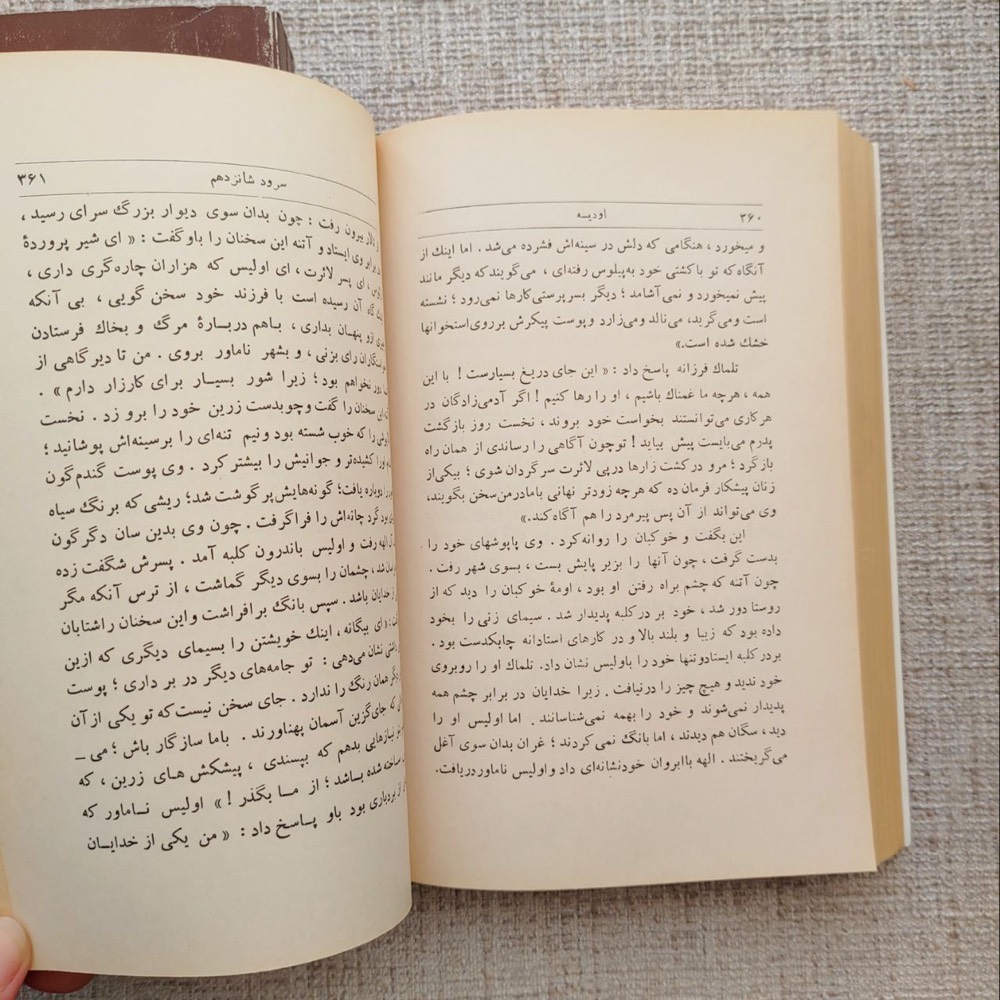 ۳۶۰ اودیسه
و میخورد ، هنگامی که دلش در سینه‌اش فشرده می‌شد . اما اینك از
آنگاه که تو با کشتی خود به‌پیلوس رفته‌ای ، می‌گویند که دیگر مانند
پیش نمیخورد و نمی‌آشامد ؛ دیگر بسرپرستی کارها نمی‌رود ؛ نشسته
است و می‌گرید، می‌نالد و می‌زارد و پوست پیکرش بر روی استخوانها
خشك شده است.»
تلماك فرزانه پاسخ داد : « این جای دریغ بسیارست ! با این
همه ، هرچه ما غمناك باشیم ، او را رها کنیم ! اگر آدمی‌زادگان در
هر کاری می‌توانستند بخواست خود بروند، نخست روز بازگشت
پدرم می‌بایست پیش بیاید ! تو چون آگاهی را رساندی از همان راه
باز گرد ؛ مرو در کشت زارها در پی لائرت سر گردان شوی ؛ بیکی‌از
زنان پیشکار فرمان ده که هرچه زودتر نهانی بامادرمن‌سخن بگویند،
وی می‌تواند از آن پس پیرمرد را هم آگاه کند.»
این بگفت و خو‌کبان را روانه کرد . وی پاپوشهای خود را
بدست گرفت ، چون آنها را بزیر پایش بست ، بسوی شهر رفت .
چون آتنه که چشم براه رفتن او بود ، اومهٔ خو‌کبان را دید که از
روستا دور شد ، خود بر در کلبه پدیدار شد . سیمای زنی را بخود
داده بود که زیبا و بلند بالا و در کارهای استادانه چابکدست بود .
بر در کلبه ایستاد و تنها خود را باولیس نشان داد. تلماك او را روبروی
خود ندید و هیچ چیز را درنیافت . زیرا خدایان در برابر چشم همه
پدیدار نمی‌شوند و خود را بهمه نمی‌شناسانند . اما اولیس او را
دید ، سگان هم دیدند ، اما بانگ نمی‌کردند ؛ غران بدان سوی آغل
می‌گریختند . الهه باابروان خودنشانه‌ای داد و اولیس ناماور دریافت.
سرود شانزدهم ۳۶۱
تالار بیرون رفت : چون بدان سوی دیوار بزرگ سرای رسید ،
برابر وی ایستاد و آتنه این سخنان را باو گفت : « ای شیر پروردهٔ
، ای پسر لائرت ، ای اولیس که هزاران چاره‌گری داری ،
گاه آن رسیده است با فرزند خود سخن گویی ، بی آنکه
ازو پنهان بداری ، باهم دربارهٔ مرگ و بخاك فرستادن
رای بزنی ، و بشهر ناماور بروی . من تا دیرگاهی از
دور نخواهم بود ؛ زیرا شور بسیار برای کارزار دارم » .
این سخنان را گفت و چوبدست زرین خود را برو زد . نخست
را که خوب شسته بود و نیم تنه‌ای را برسینه‌اش پوشانید ؛
اورا کشیده‌تر و جوانیش را بیشتر کرد . وی پوست گندم‌گون
را دوباره یافت ؛ گونه‌هایش پر گوشت شد ؛ ریشی که برنگ سیاه
بود گرد چانه‌اش را فراگرفت . چون وی بدین سان دگرگون
الهه رفت و اولیس باندرون کلبه آمد . پسرش شگفت زده
شد ، چشمان را بسوی دیگر گماشت ، از ترس آنکه مگر
از خدایان باشد . سپس بانگ برافراشت و این سخنان را شتابان
: « ای بیگانه ، اینك خویشتن را بسیمای دیگری که ازین
نشان می‌دهی : تو جامه‌های دیگر در بر داری ؛ پوست
همان رنگ را ندارد . جای سخن نیست که تو یکی از آن
که جای‌گزین آسمان پهناورند . باما سازگار باش ؛ می –
نیازهایی بدهم که بپسندی ، پیشکش های زرین ، که
ساخته شده باشد ؛ از ما بگذر ! » اولیس ناماور که
بردباری بود باو پاسخ داد : « من یکی از خدایان